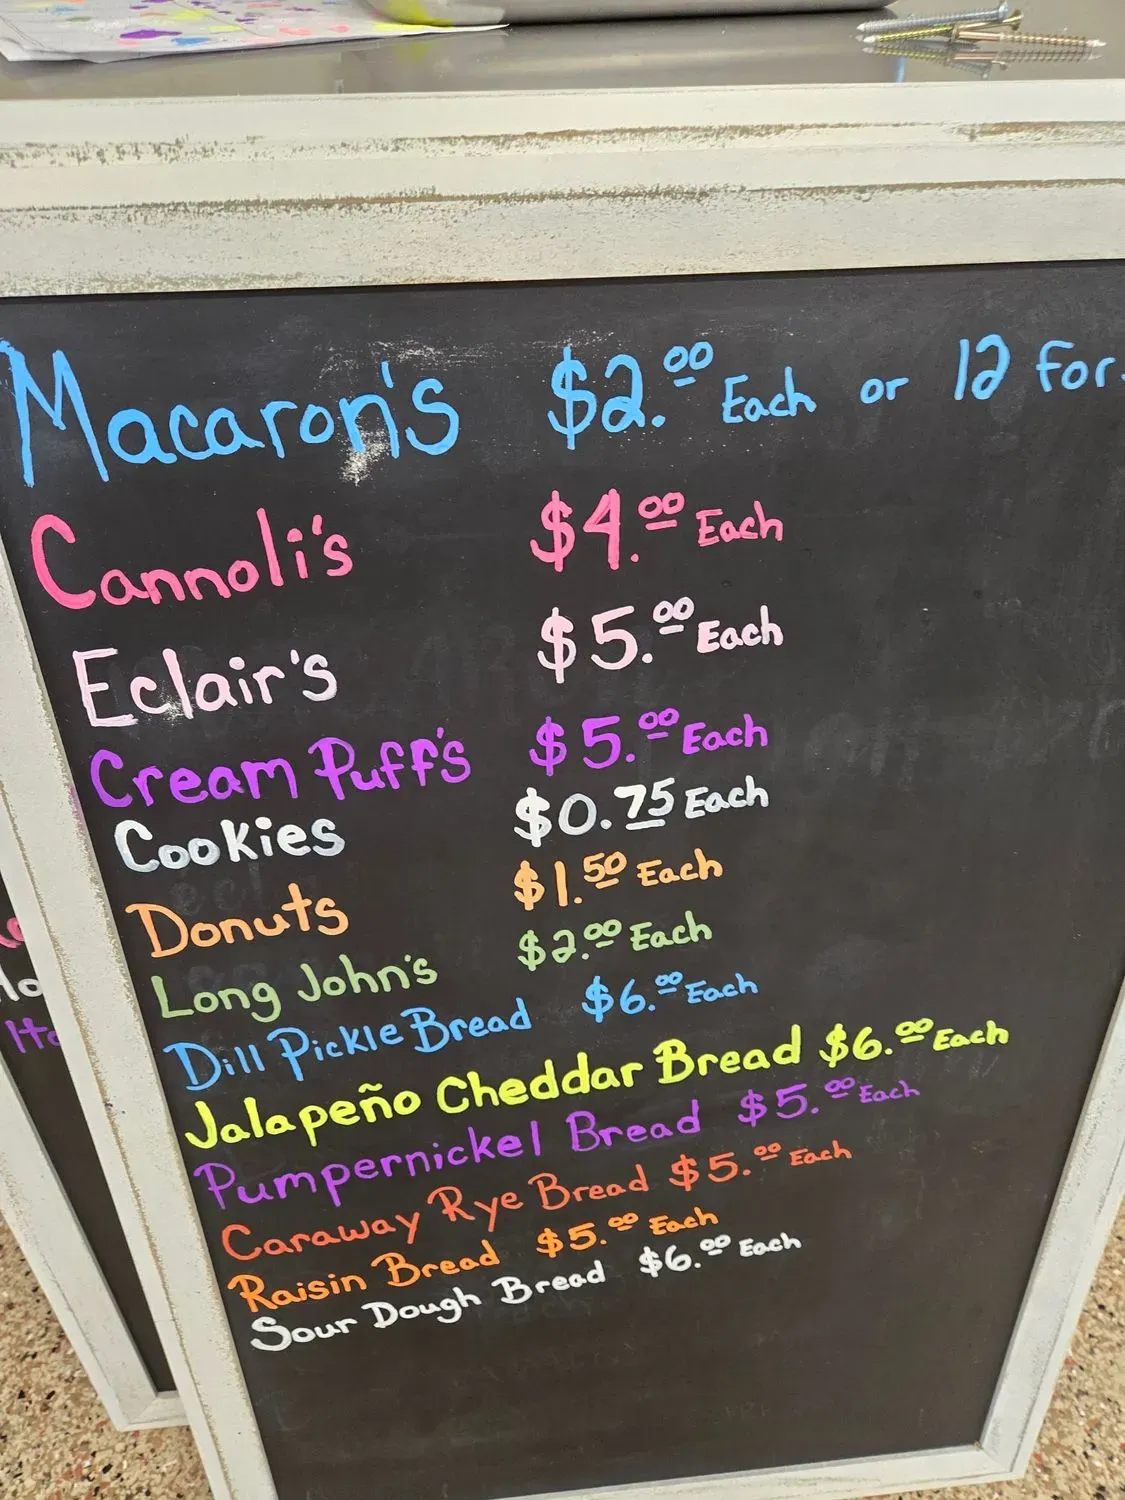 Macaron's $2.00 Each or 12 For
Cannoli's $4.00 Each
Eclair's $5.00 Each
Cream Puff's $5.00 Each
Cookies $0.75 Each
Donuts $1.50 Each
Long John's $2.00 Each
Dill Pickle Bread $6.00 Each
Jalapeño Cheddar Bread $6.00 Each
Pumpernickel Bread $5.00 Each
Caraway Rye Bread $5.00 Each
Raisin Bread $5.00 Each
Sour Dough Bread $6.00 Each